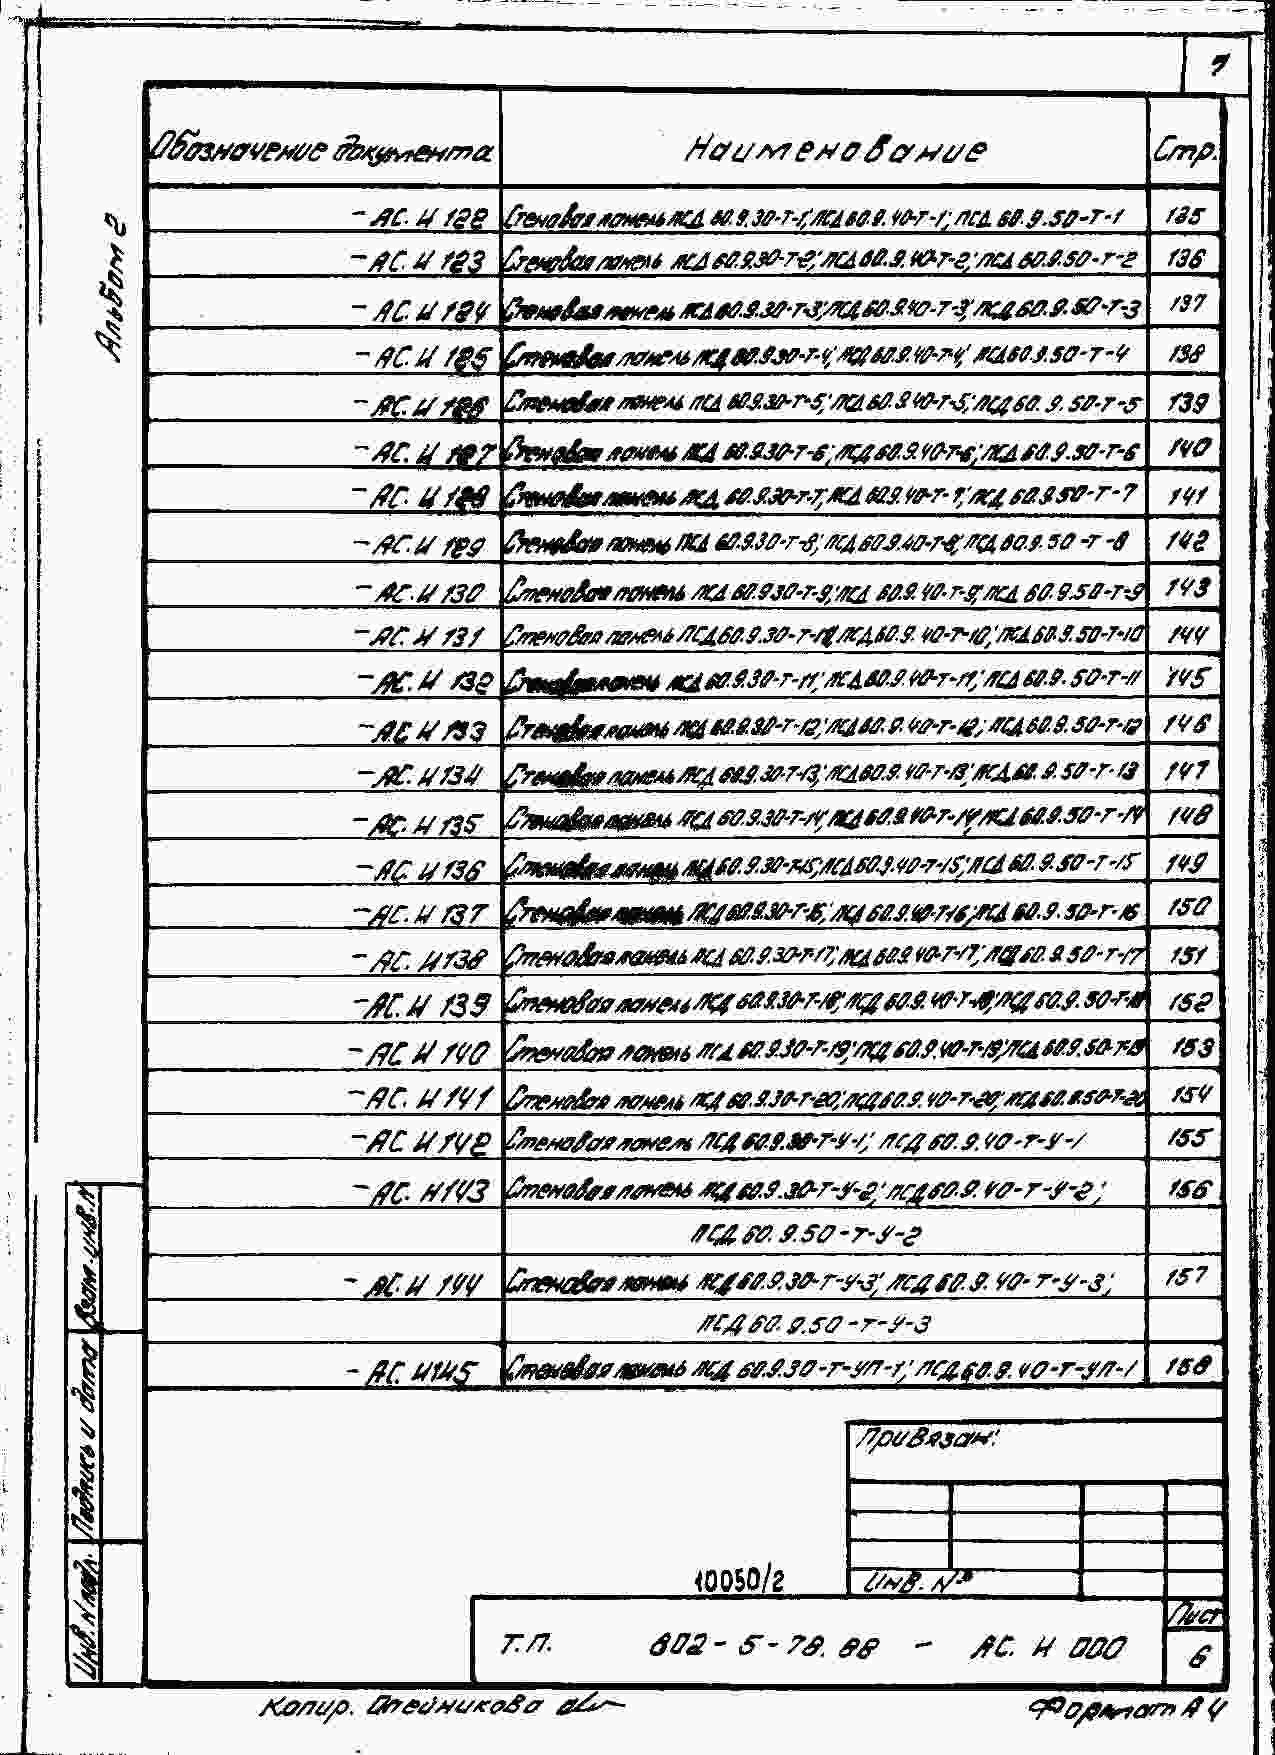 7
Альбом 2
Обозначение документа Наименование Стр.
- АС. И 122 Стеновая панель ПСД 60.9.30-Т-1; ПСД 60.9.40-Т-1; ПСД 60.9.50-Т-1 135
- АС. И 123 Стеновая панель ПСД 60.9.30-Т-2; ПСД 60.9.40-Т-2; ПСД 60.9.50-Т-2 136
- АС. И 124 Стеновая панель ПСД 60.9.30-Т-3; ПСД 60.9.40-Т-3; ПСД 60.9.50-Т-3 137
- АС. И 125 Стеновая панель ПСД 60.9.30-Т-4; ПСД 60.9.40-Т-4; ПСД 60.9.50-Т-4 138
- АС. И 126 Стеновая панель ПСД 60.9.30-Т-5; ПСД 60.9.40-Т-5; ПСД 60.9.50-Т-5 139
- АС. И 127 Стеновая панель ПСД 60.9.30-Т-6; ПСД 60.9.40-Т-6; ПСД 60.9.50-Т-6 140
- АС. И 128 Стеновая панель ПСД 60.9.30-Т-7; ПСД 60.9.40-Т-7; ПСД 60.9.50-Т-7 141
- АС. И 129 Стеновая панель ПСД 60.9.30-Т-8; ПСД 60.9.40-Т-8; ПСД 60.9.50-Т-8 142
- АС. И 130 Стеновая панель ПСД 60.9.30-Т-9; ПСД 60.9.40-Т-9; ПСД 60.9.50-Т-9 143
- АС. И 131 Стеновая панель ПСД 60.9.30-Т-10; ПСД 60.9.40-Т-10; ПСД 60.9.50-Т-10 144
- АС. И 132 Стеновая панель ПСД 60.9.30-Т-11; ПСД 60.9.40-Т-11; ПСД 60.9.50-Т-11 145
- АС И 133 Стеновая панель ПСД 60.9.30-Т-12; ПСД 60.9.40-Т-12; ПСД 60.9.50-Т-12 146
- АС. И 134 Стеновая панель ПСД 60.9.30-Т-13; ПСД 60.9.40-Т-13; ПСД 60.9.50-Т-13 147
- АС. И 135 Стеновая панель ПСД 60.9.30-Т-14; ПСД 60.9.40-Т-14; ПСД 60.9.50-Т-14 148
- АС. И 136 Стеновая панель ПСД 60.9.30-Т-15; ПСД 60.9.40-Т-15; ПСД 60.9.50-Т-15 149
- АС. И 137 Стеновая панель ПСД 60.9.30-Т-16; ПСД 60.9.40-Т-16; ПСД 60.9.50-Т-16 150
- АС. И 138 Стеновая панель ПСД 60.9.30-Т-17; ПСД 60.9.40-Т-17; ПСД 60.9.50-Т-17 151
- АС. И 139 Стеновая панель ПСД 60.9.30-Т-18; ПСД 60.9.40-Т-18; ПСД 60.9.50-Т-18 152
- АС И 140 Стеновая панель ПСД 60.9.30-Т-19; ПСД 60.9.40-Т-19; ПСД 60.9.50-Т-19 153
- АС. И 141 Стеновая панель ПСД 60.9.30-Т-20; ПСД 60.9.40-Т-20; ПСД 60.9.50-Т-20 154
- АС И 142 Стеновая панель ПСД 60.9.30-Т-У-1; ПСД 60.9.40-Т-У-1 155
- АС. И 143 Стеновая панель ПСД 60.9.30-Т-У-2; ПСД 60.9.40-Т-У-2; 156
ПСД 60.9.50-Т-У-2
- АС. И 144 Стеновая панель ПСД 60.9.30-Т-У-3; ПСД 60.9.40-Т-У-3; 157
ПСД 60.9.50-Т-У-3
- АС. И 145 Стеновая панель ПСД 60.9.30-Т-УП-1; ПСД 60.9.40-Т-УП-1 158
Взам. инв. N
Подпись и дата
Инв. N подл.
Привязан:
Инв. №
10050/2
Т.П. 802-5-78.88 - АС. И 000
Лист
6
Копир. Олейникова
Формат А4